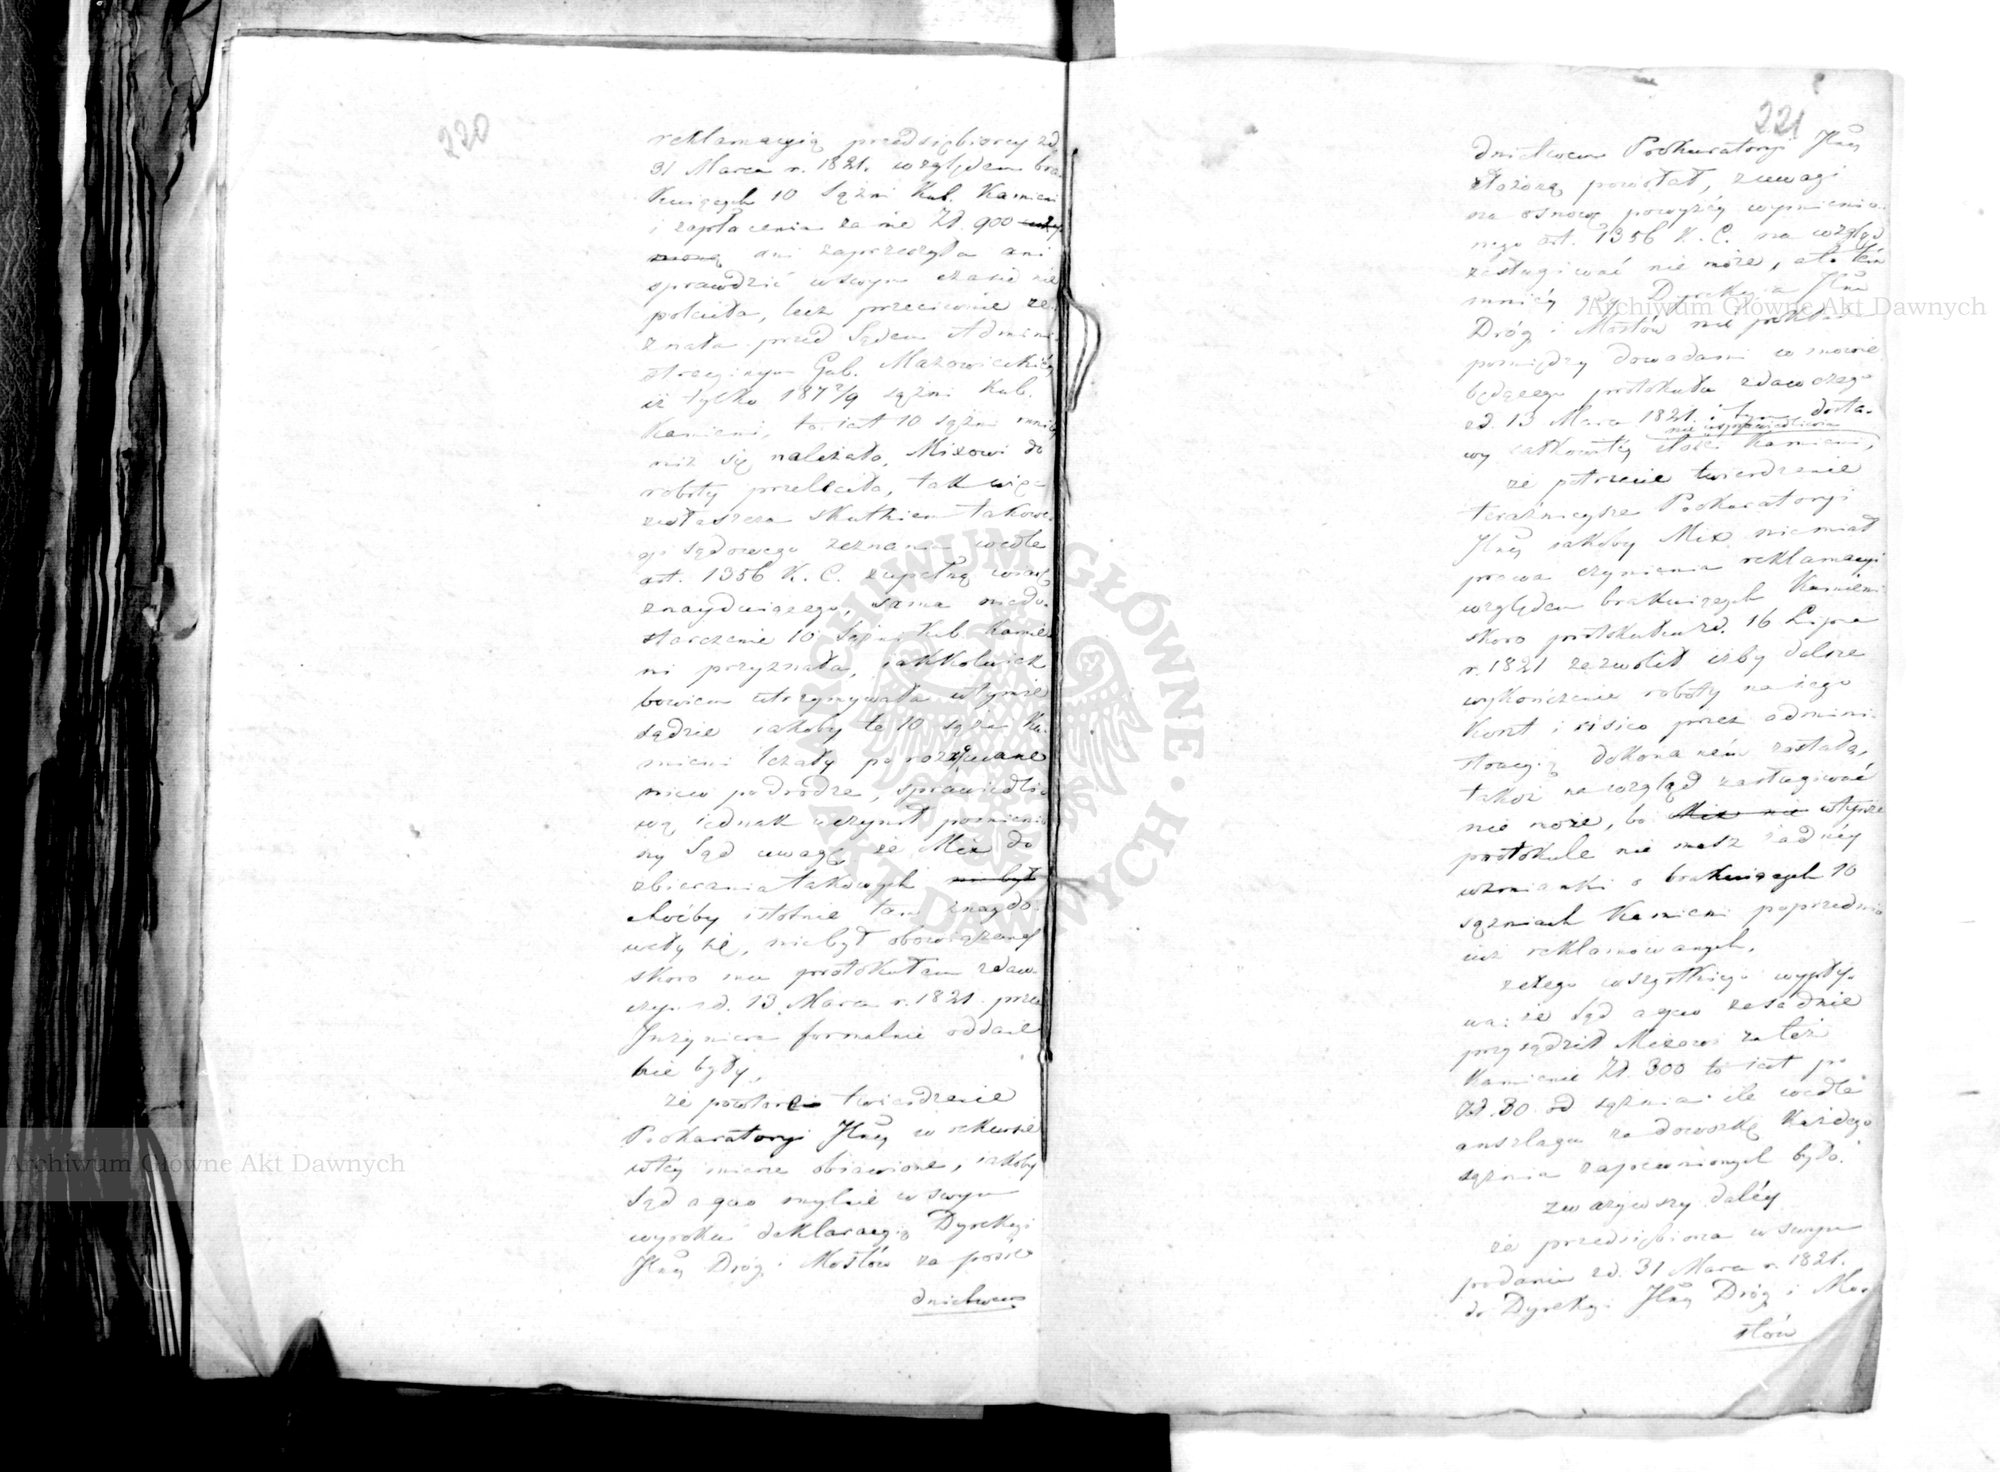 220
reklamacyią przedsiębiorcy zd.
31 Marca r. 1821. względem bra
kuiących 10 Sążni Kub. Kamieni
i zapłacenia za nie Zł. 900
ani zaprzeczyła ani
sprawdzić wswym czasie nie
poleciła, lecz przeciwnie ze
znała przed Sądem Admini
stracyinym Gub. Mazowieckiéy
iż tylko 187 7/9 sążni Kub.
Kamieni, to iest 10 sążni mniéy
niż się należało, Mixowi do
roboty przeleciła, tak więc
zwłaszcza skutkiem takowe
go sądowego zeznania wedle
art. 1356 K. C. zupełną wiarę
znayduiącego, sama niedo
starczenie 10 Sążni Kub. Kamie
ni przyznała, iakkolwiek
bowiem utrzymywała wtymże
sądzie iakoby te 10 sążni Ka
mieni leżały porozsypywane
nieco podrodze, sprawiedli
wą iednak uczynił pomienio
ny Sąd uwagę, że Mix do
zbierania takowych nie był
choćby istotnie tam znaydo
wały się, niebył obowiązanym
skoro mu protokułem zdaw
czym zd. 13 Marca r. 1821. przez
Inżyniera formalnie oddane
nie były,
że powtórne twierdzenie
Prokuratoryi Jlney w rekursie
wtéy mierze obiawione, iakoby
Sąd a quo mylnie w swym
wyroku deklaracyą Dyrekcyi
Jlney Dróg i Mostów za pośre
dnictwem
221
dnictwem Prokuratoryi Jlney
złożoną powołał, zuwagi
na osnowę powyżéy wymienio
nego art. 1356 K. C. na wzgląd
zasługiwać nie może, a to tém
mniéy gdy Dyrekcya Jlna
Dróg i Mostów nie
pomiędzy dowodami w mowie
będącego protokułu zdawczego
zd. 13 Marca 1821. i tym dosta
nie usprawiedliwia
wy całkowitéy ilości Kamieni,
że potrzecie twierdzenie
teraźnieysze Prokuratoryi
Jlney iakoby Mix niemiał
prawa czynienia reklamacyi
względem brakuiących Kamieni
skoro protokułem zd. 16 Lipca
r. 1821 zezwolił iżby dalsze
wykończenie roboty na iego
koszt i risico przez admini
stracyią dokonaném zostało,
takoż na wzgląd zasługiwać
nie może, bo Mix nie wtymże
protokule nie masz żadnéy
wzmianki o brakuiących 10
sążniach Kamieni poprzednio
iuż reklamowanych.
Ztego wszystkiego wypły
wa: że Sąd a quo zasadnie
przysądził Mixowi za też
Kamienie Zł. 300 to iest po
Zł. 30 od sążnia: ile wedle
anszlagu za dowózkę każdego
sążnia zapewnionych było.
zważywszy daléy
że przedsiębiorca w swym
podaniu zd. 31 Marca r. 1821.
do Dyrekcyi Jlney Dróg i Mo
stów
Archiwum Główne Akt Dawnych
Archiwum Główne Akt Dawnych
ARCHIWUM GŁÓWNE AKT DAWNYCH